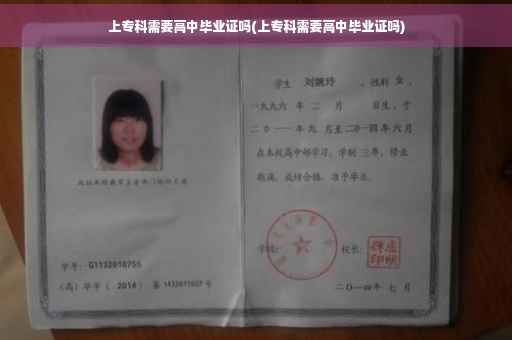 上专科需要高中毕业证吗(上专科需要高中毕业证吗)
学生 刘婉玲 ，性别 女 ，
一九九六 年 二 月 日生，于
二〇一一 年 九 月至 二〇一四 年 六 月
在本校高中部学习，学制 三 年，修业
期满，成绩合格，准予毕业。
学校： 校长：
二〇一四 年 七 月
学号： G1132010755
（高）毕字（ 2014 ）第 1432011027 号